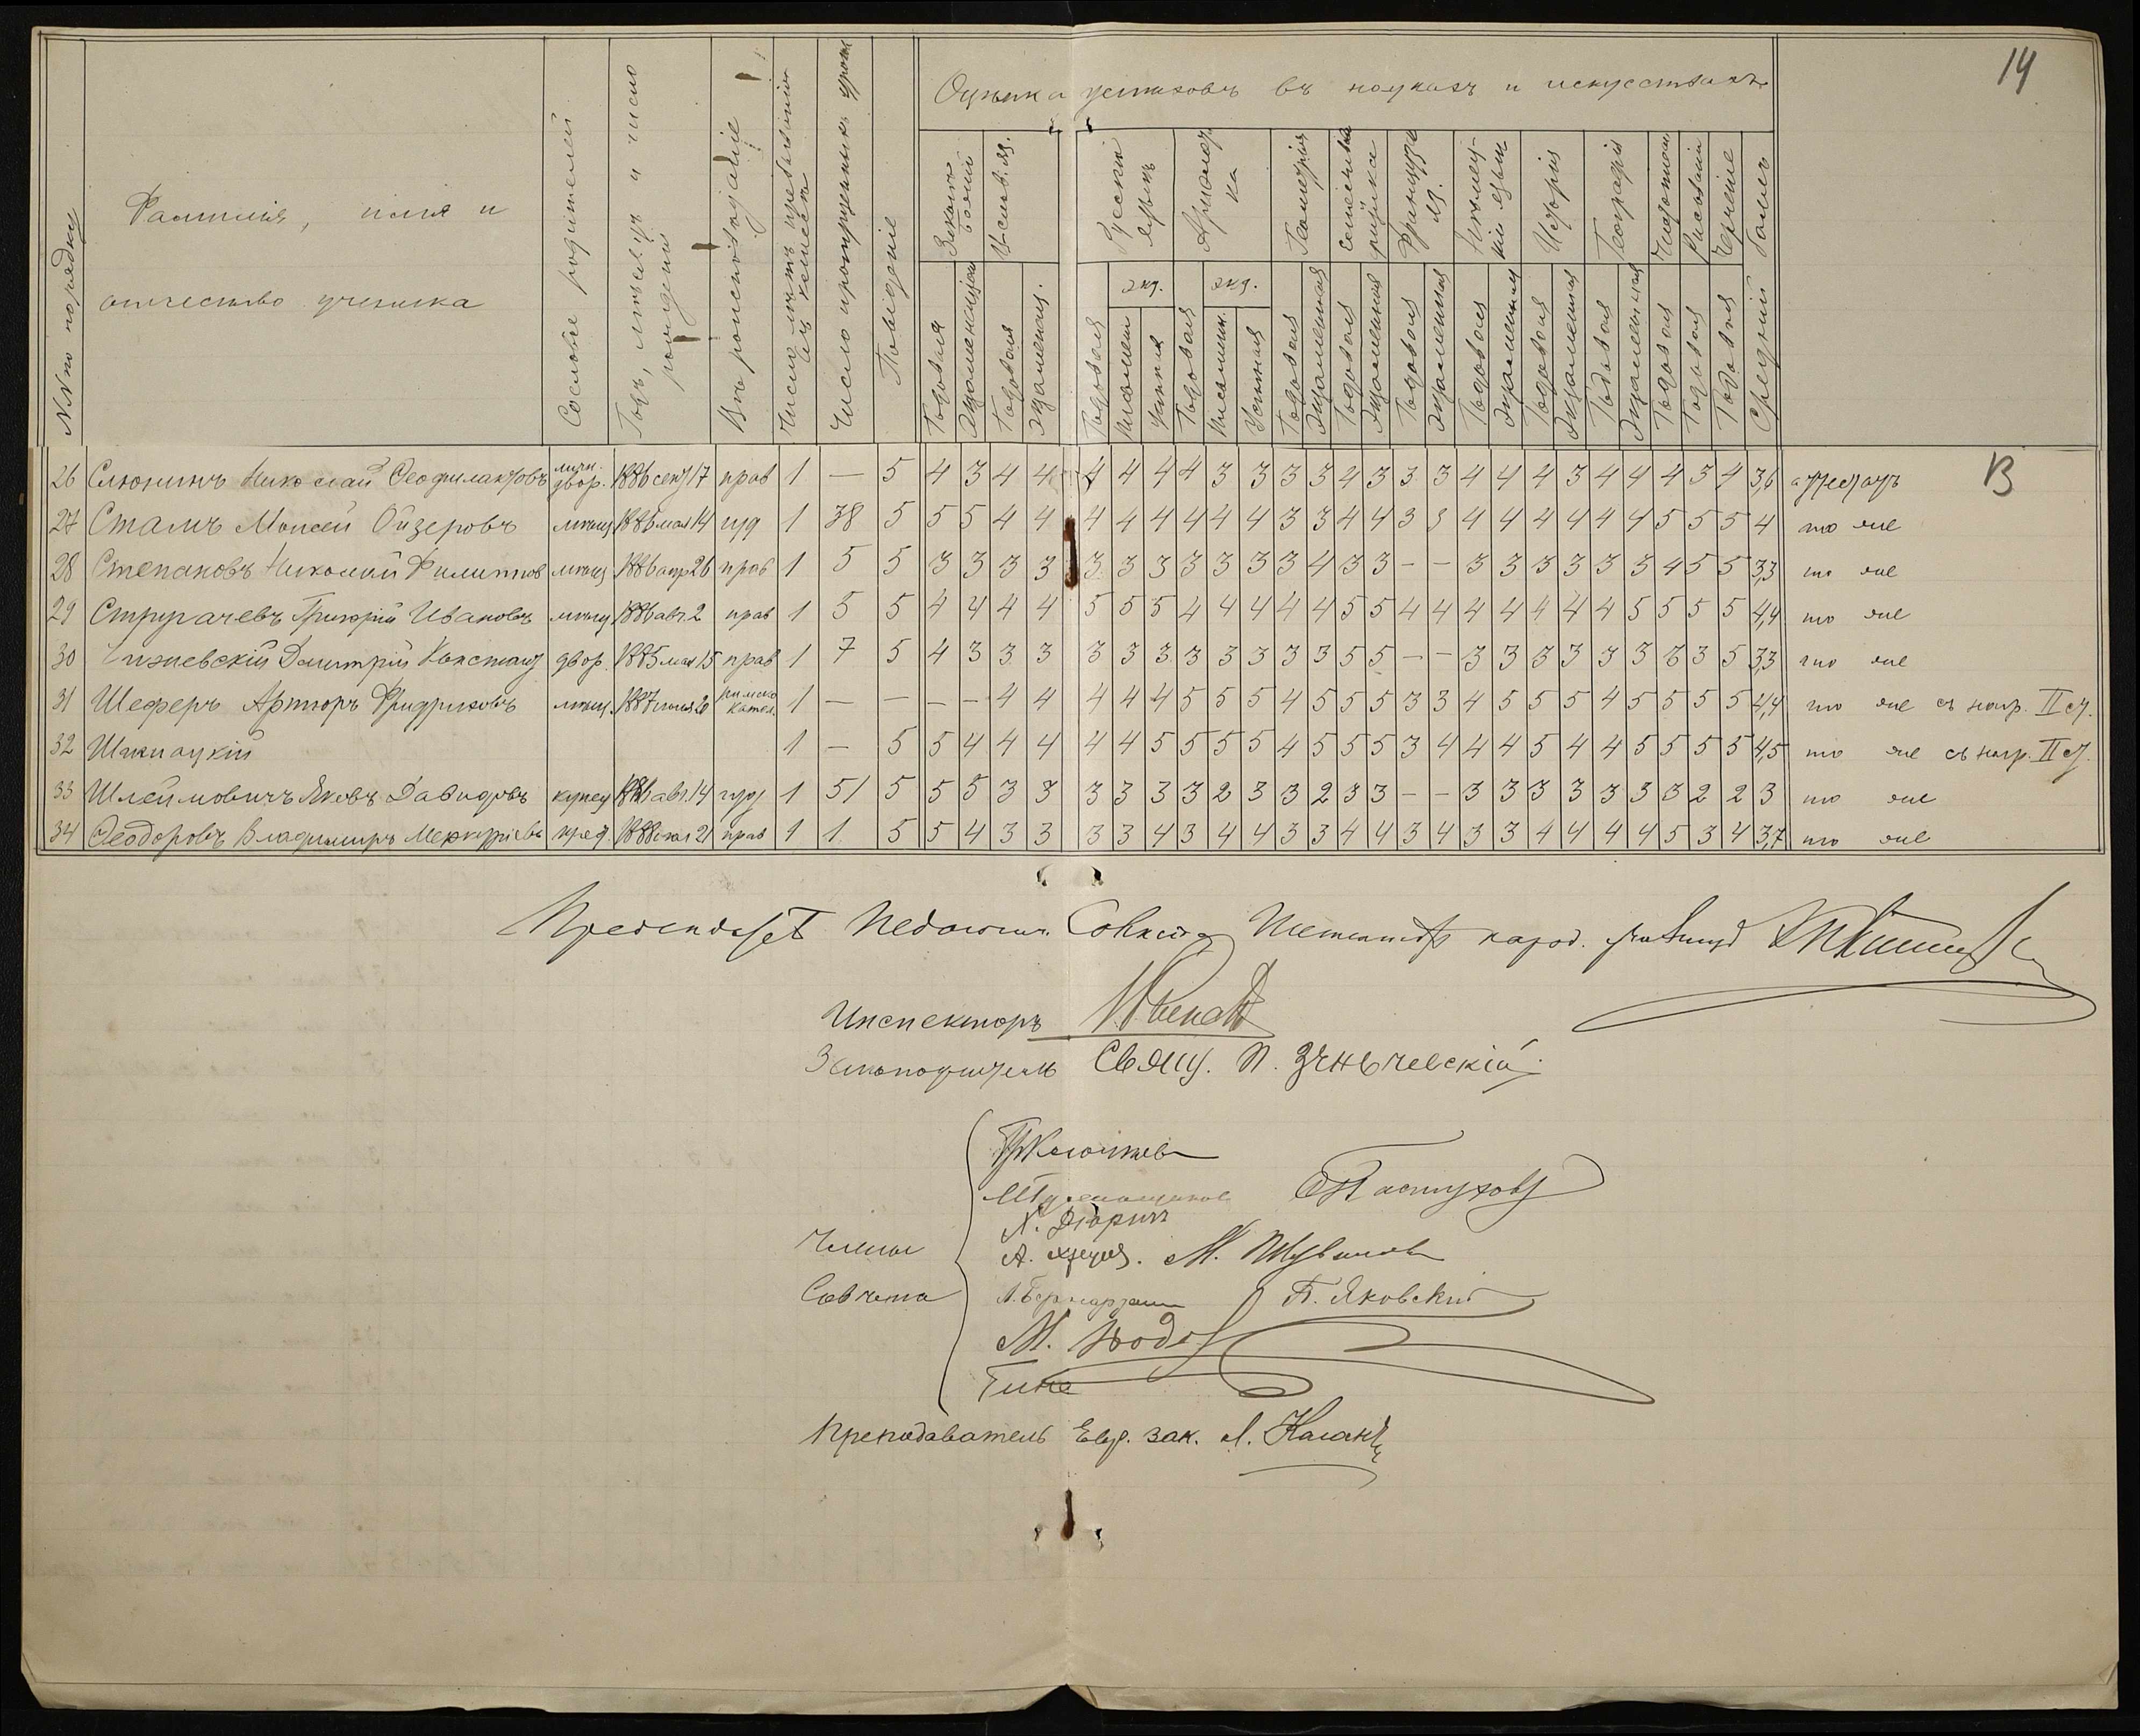 14
Оцѣнка успѣховъ въ наукахъ и искусствахъ
№№ по порядку
Фамилія, имя и
отчество ученика
Сословіе родителей
Годъ, мѣсяцъ и число
рожденія
Вѣроисповѣданіе
Число лѣтъ пребыванія
въ классѣ
Число пропущенныхъ уроковъ
Поведеніе
Законъ
Божій
Ц-слав. яз.
Русскій
языкъ
Ариѳмети
ка
Геометрія
Французск
яз.
Нѣмец-
кій языкъ
Исторія
Географія
Чистописан
Рисованіи
Черченіе
Средній баллъ
экз. экз.
Годовая Экзаменаціон Годовая Экзаменац. Годовая Письмен Устная Годовая Письменн. Устная Годовая Экзаменная Годовая Экзаменная Годовая Экзаменная Годовая Экзаменная Годовая Экзаменная Годовая Экзаменная Годовая Годовая Годовая
26 Слюнинъ Николай Ѳеофилактовъ личн. двор. 1886 сент 17 прав 1 — 5 4 3 4 4 4 4 4 4 3 3 3 3 4 3 3 3 4 4 4 3 4 4 4 3 4 3,6 аттестатъ В
27 Сталъ Моисей Ойзеровъ мѣщ 1886 мая 14 іуд 1 38 5 5 5 4 4 4 4 4 4 4 4 3 3 4 4 3 3 4 4 4 4 4 4 5 5 5 4 то же
28 Степановъ Николай Филиппов мѣщ 1886 апр 26 прав 1 5 5 3 3 3 3 3 3 3 3 3 3 3 4 3 3 - - 3 3 3 3 3 3 4 5 5 3,3 то же
29 Стругачевъ Григорій Ивановъ мѣщ 1886 авг. 2 прав 1 5 5 4 4 4 4 5 5 5 4 4 4 4 4 5 5 4 4 4 4 4 4 4 5 5 5 5 4,4 то же
30 Чижевскій Дмитрій Констант двор. 1885 мая 15 прав 1 7 5 4 3 3 3 3 3 3 3 3 3 3 3 5 5 - - 3 3 3 3 3 3 3 3 5 3,3 то же
31 Шеферъ Артюръ Фридриховъ мѣщ. 1887 іюня 20 римско катол. 1 — — — — 4 4 4 4 4 5 5 5 4 5 5 5 3 3 4 5 5 5 4 5 5 5 5 4,4 то же съ нагр. II ст.
32 1 — 5 5 4 4 4 4 4 5 5 5 5 4 5 5 5 3 4 4 4 5 4 4 5 5 5 5 4,5 то же съ нагр. II ст.
33 Шлеймовичъ Яковъ Давидовъ купец авг. 14 іуд 1 51 5 5 5 3 3 3 3 3 3 2 3 3 2 3 3 - - 3 3 3 3 3 3 3 2 2 3 то же
34 Ѳеодоровъ Владимиръ Меркурьевъ крест. мая 21 прав 1 1 5 5 4 3 3 3 3 4 3 4 4 3 3 4 4 3 4 3 3 4 4 4 4 5 3 4 3,7 то же
Педагогич. Совѣта народ.
Инспекторъ
Законоучитель Свящ. П.
Пастуховъ
Члены
А. М. Шувалов
Совѣта П. Яковскій
М.
Преподаватель Евр. зак.